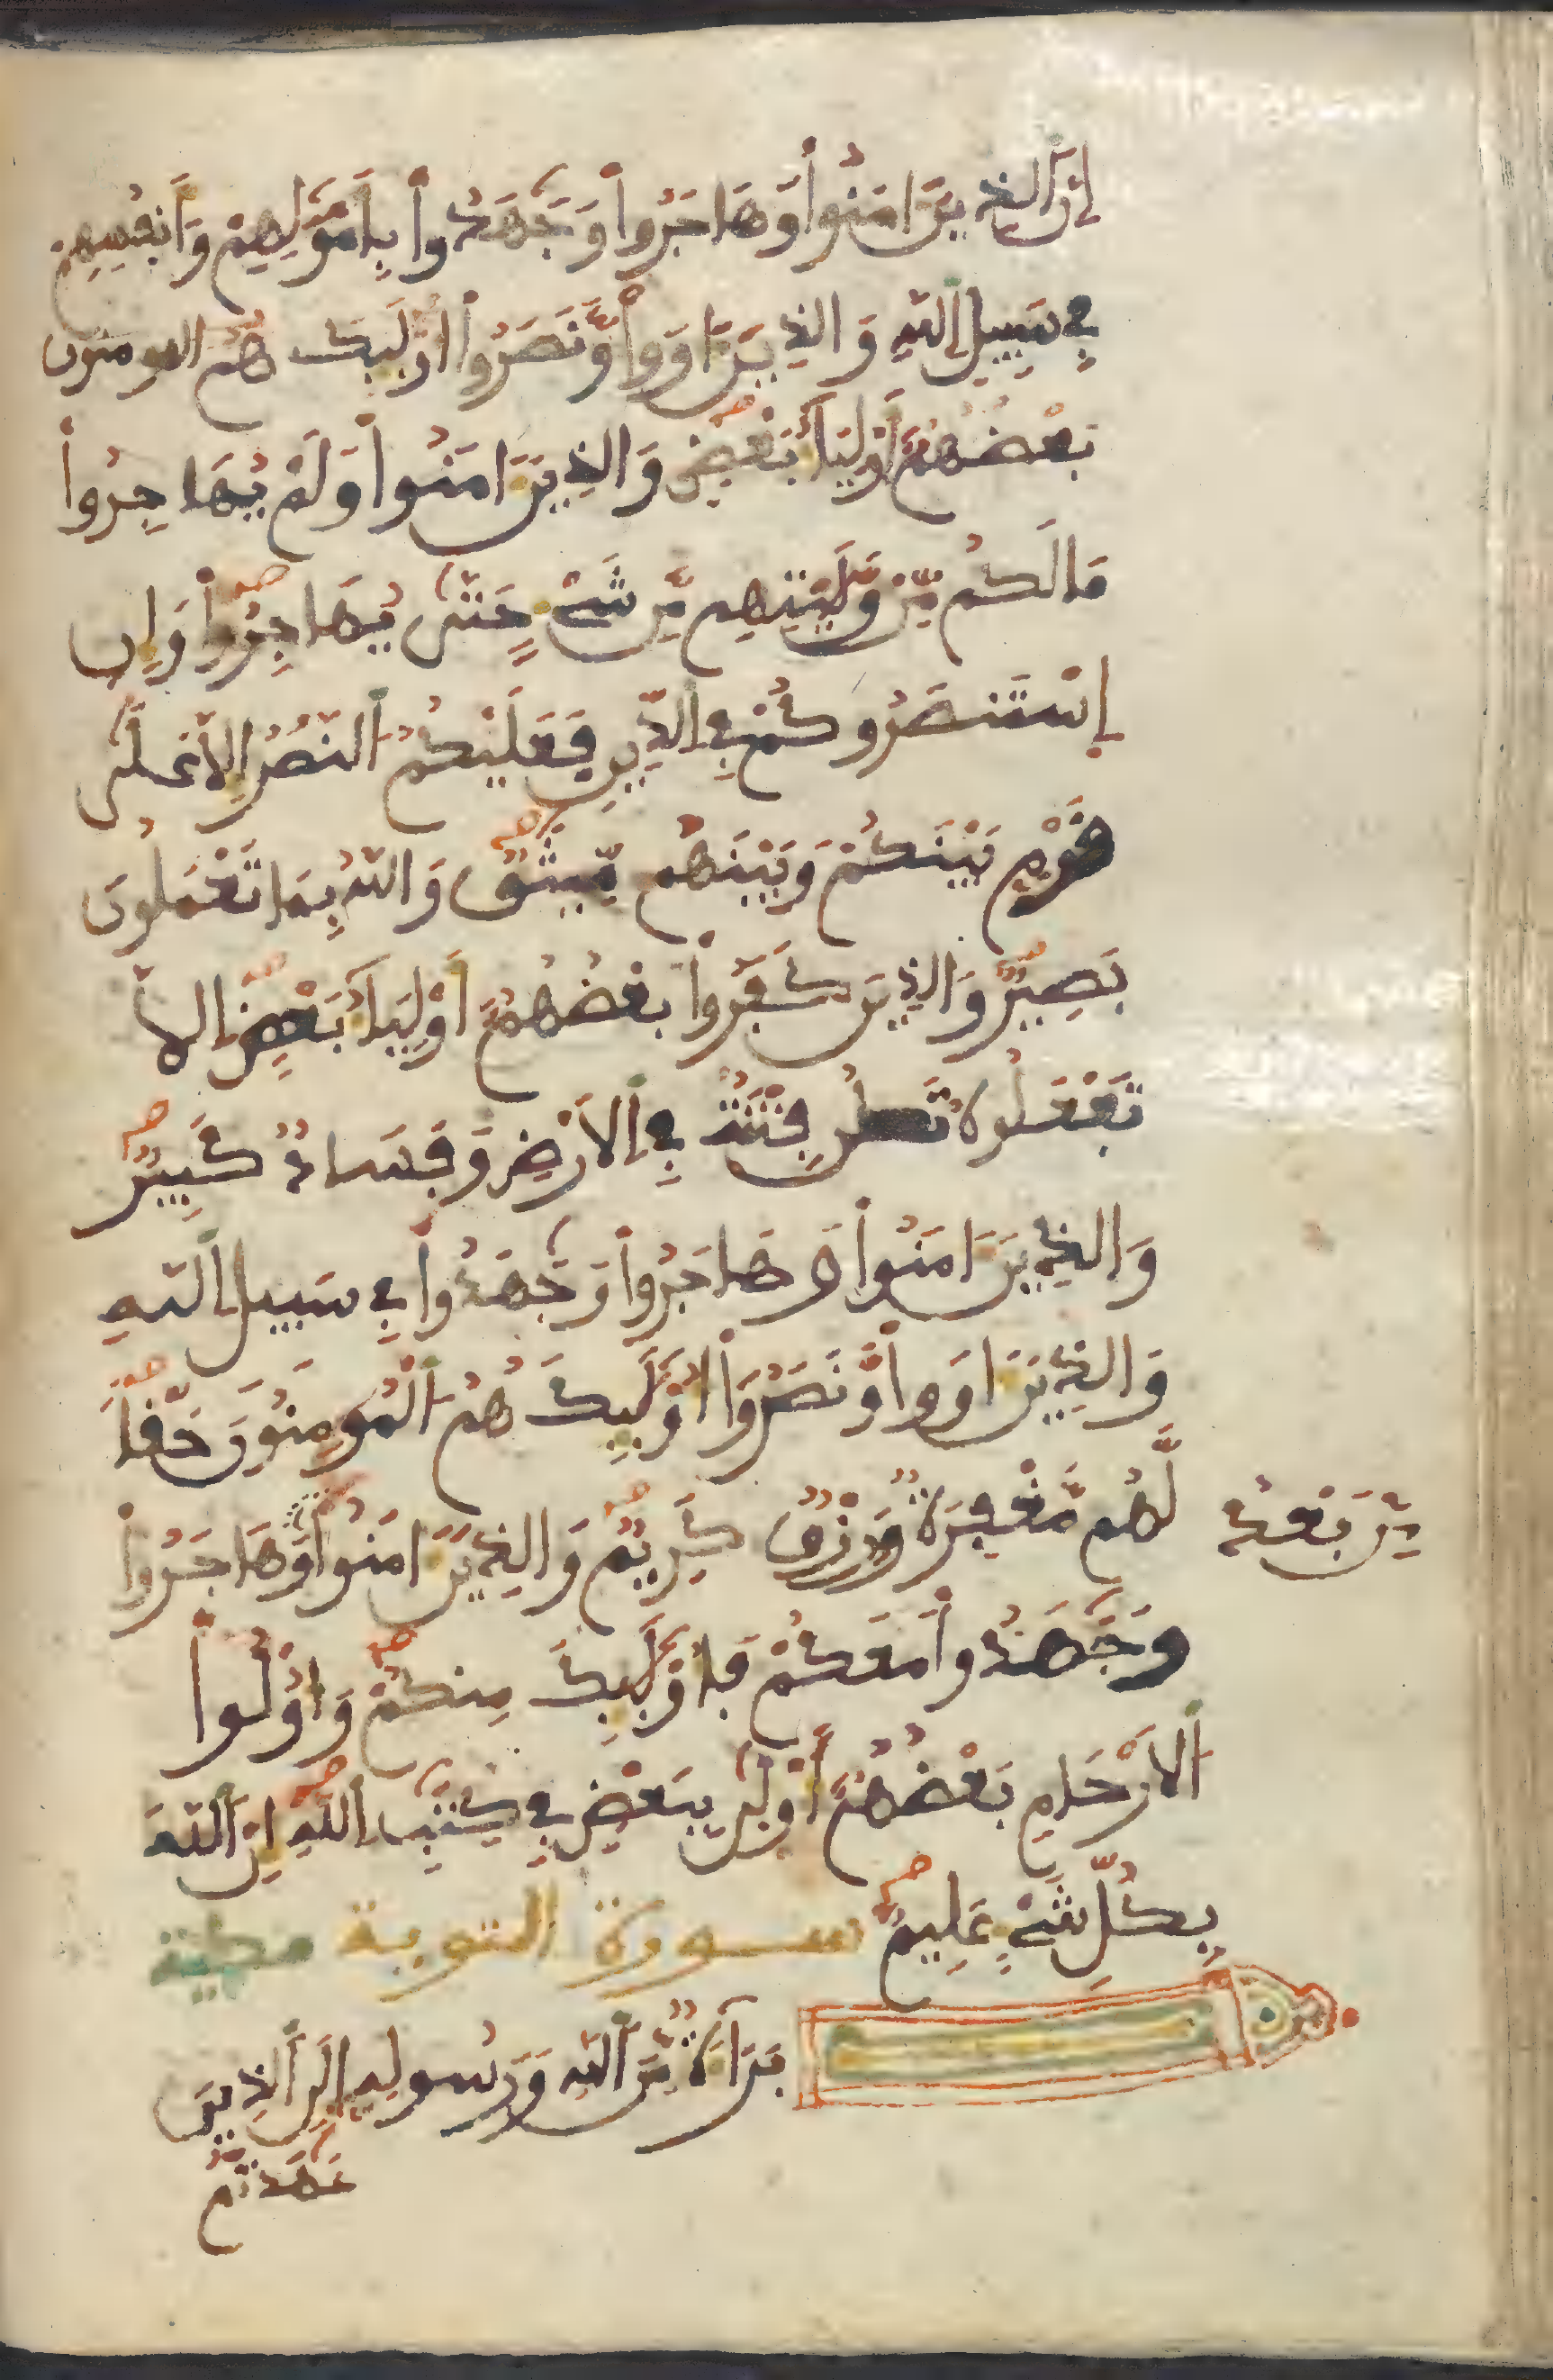 إنَّ ألذِينَ ءَامَنُواْ وَهَاجَرُواْ وَجَٰهَدُواْ بِأَمْوَٰلِهِمْ وَأَنفُسِهِمْ
فِي سَبِيلِ إللَّهِ وَالذِينَ ءَاوَواْ وَّنَصَرُواْ أُوْلَٰئِكَ هُمُ المومنون
بَعْضُهُمُ أَوْلِيَاءُ بَعْضٍ وَالذِينَ ءَامَنُواْ وَلَمْ يُهَاجِرُواْ
مَا لَكُم مِّنْ وَّلَٰيَتِهِم مِّن شَيْءٍ حَتَّىٰ يُهَاجِرُواْ وَإِنِ
إِسْتَنصَرُوكُمْ فِي إلدِّينِ فَعَلَيْكُمُ ألنَّصْرُ إِلَّا عَلَىٰ
قَوْمٍ بَيْنَكُمْ وَبَيْنَهُم مِّيثَٰقٌ وَاللَّهُ بِمَا تَعْمَلُونَ
بَصِيرٌ وَالذِينَ كَفَرُواْ بَعْضُهُمُ أَوْلِيَاءُ بَعْضٍ إلَّا
تَفْعَلُوهُ تَكُن فِتْنَةٌ فِي إلَارْضِ وَفَسَادٌ كَبِيرٌ
وَالذِينَ ءَامَنُواْ وَهَاجَرُواْ وَجَٰهَدُواْ فِي سَبِيلِ إللَّهِ
وَالذِينَ ءَاوَواْ وَّنَصَرُواْ أُوْلَٰئِكَ هُمُ ألْمُومِنُونَ حَقّاً
لَّهُم مَّغْفِرَةٌ وَرِزْقٌ كَرِيمٌ وَالذِينَ ءَامَنُواْ وَهَاجَرُواْ
مِنۢ بَعْدُ
وَجَٰهَدُواْ مَعَكُمْ فَأُوْلَٰئِكَ مِنكُمْ وَأُوْلُواْ
ألَارْحَامِ بَعْضُهُمُ أَوْلَىٰ بِبَعْضٍ فِي كِتَٰبِ إللَّهِ إِنَّ أللَّهَ
بِكُلِّ شَيْءٍ عَلِيمٌ سورة التوبة مكية
بَرَاءَةٌ مِّنَ أللَّهِ وَرَسُولِهِ إِلَى ألذِينَ
عَٰهَدتُّم